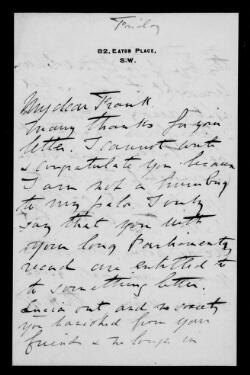 Friday
82, EATON PLACE,
S.W.
My dear Frank
Many thanks for your
letter. I cannot write
& congratulate you because
I am not a humbug
to my pals. I only
say that you with
your long Parliamentary
record are entitled to
to something better.
out and no
you banished from your
friends & no longer in